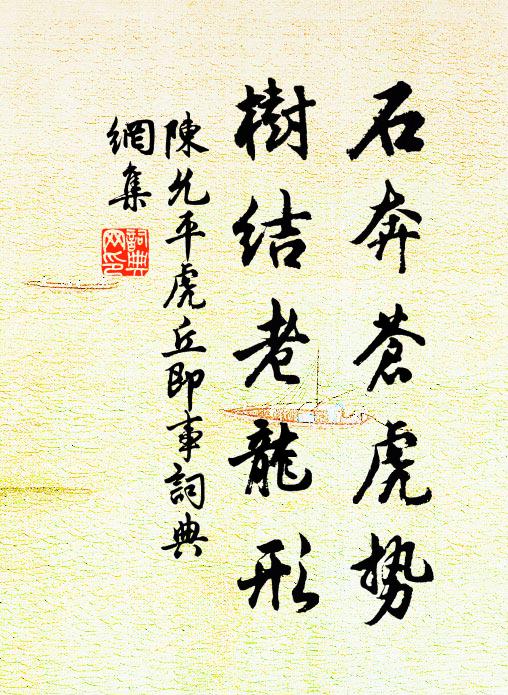 石奔苍虎势
樹结老龍形
陳允平虎丘即事詞典
網集
詞典
网印